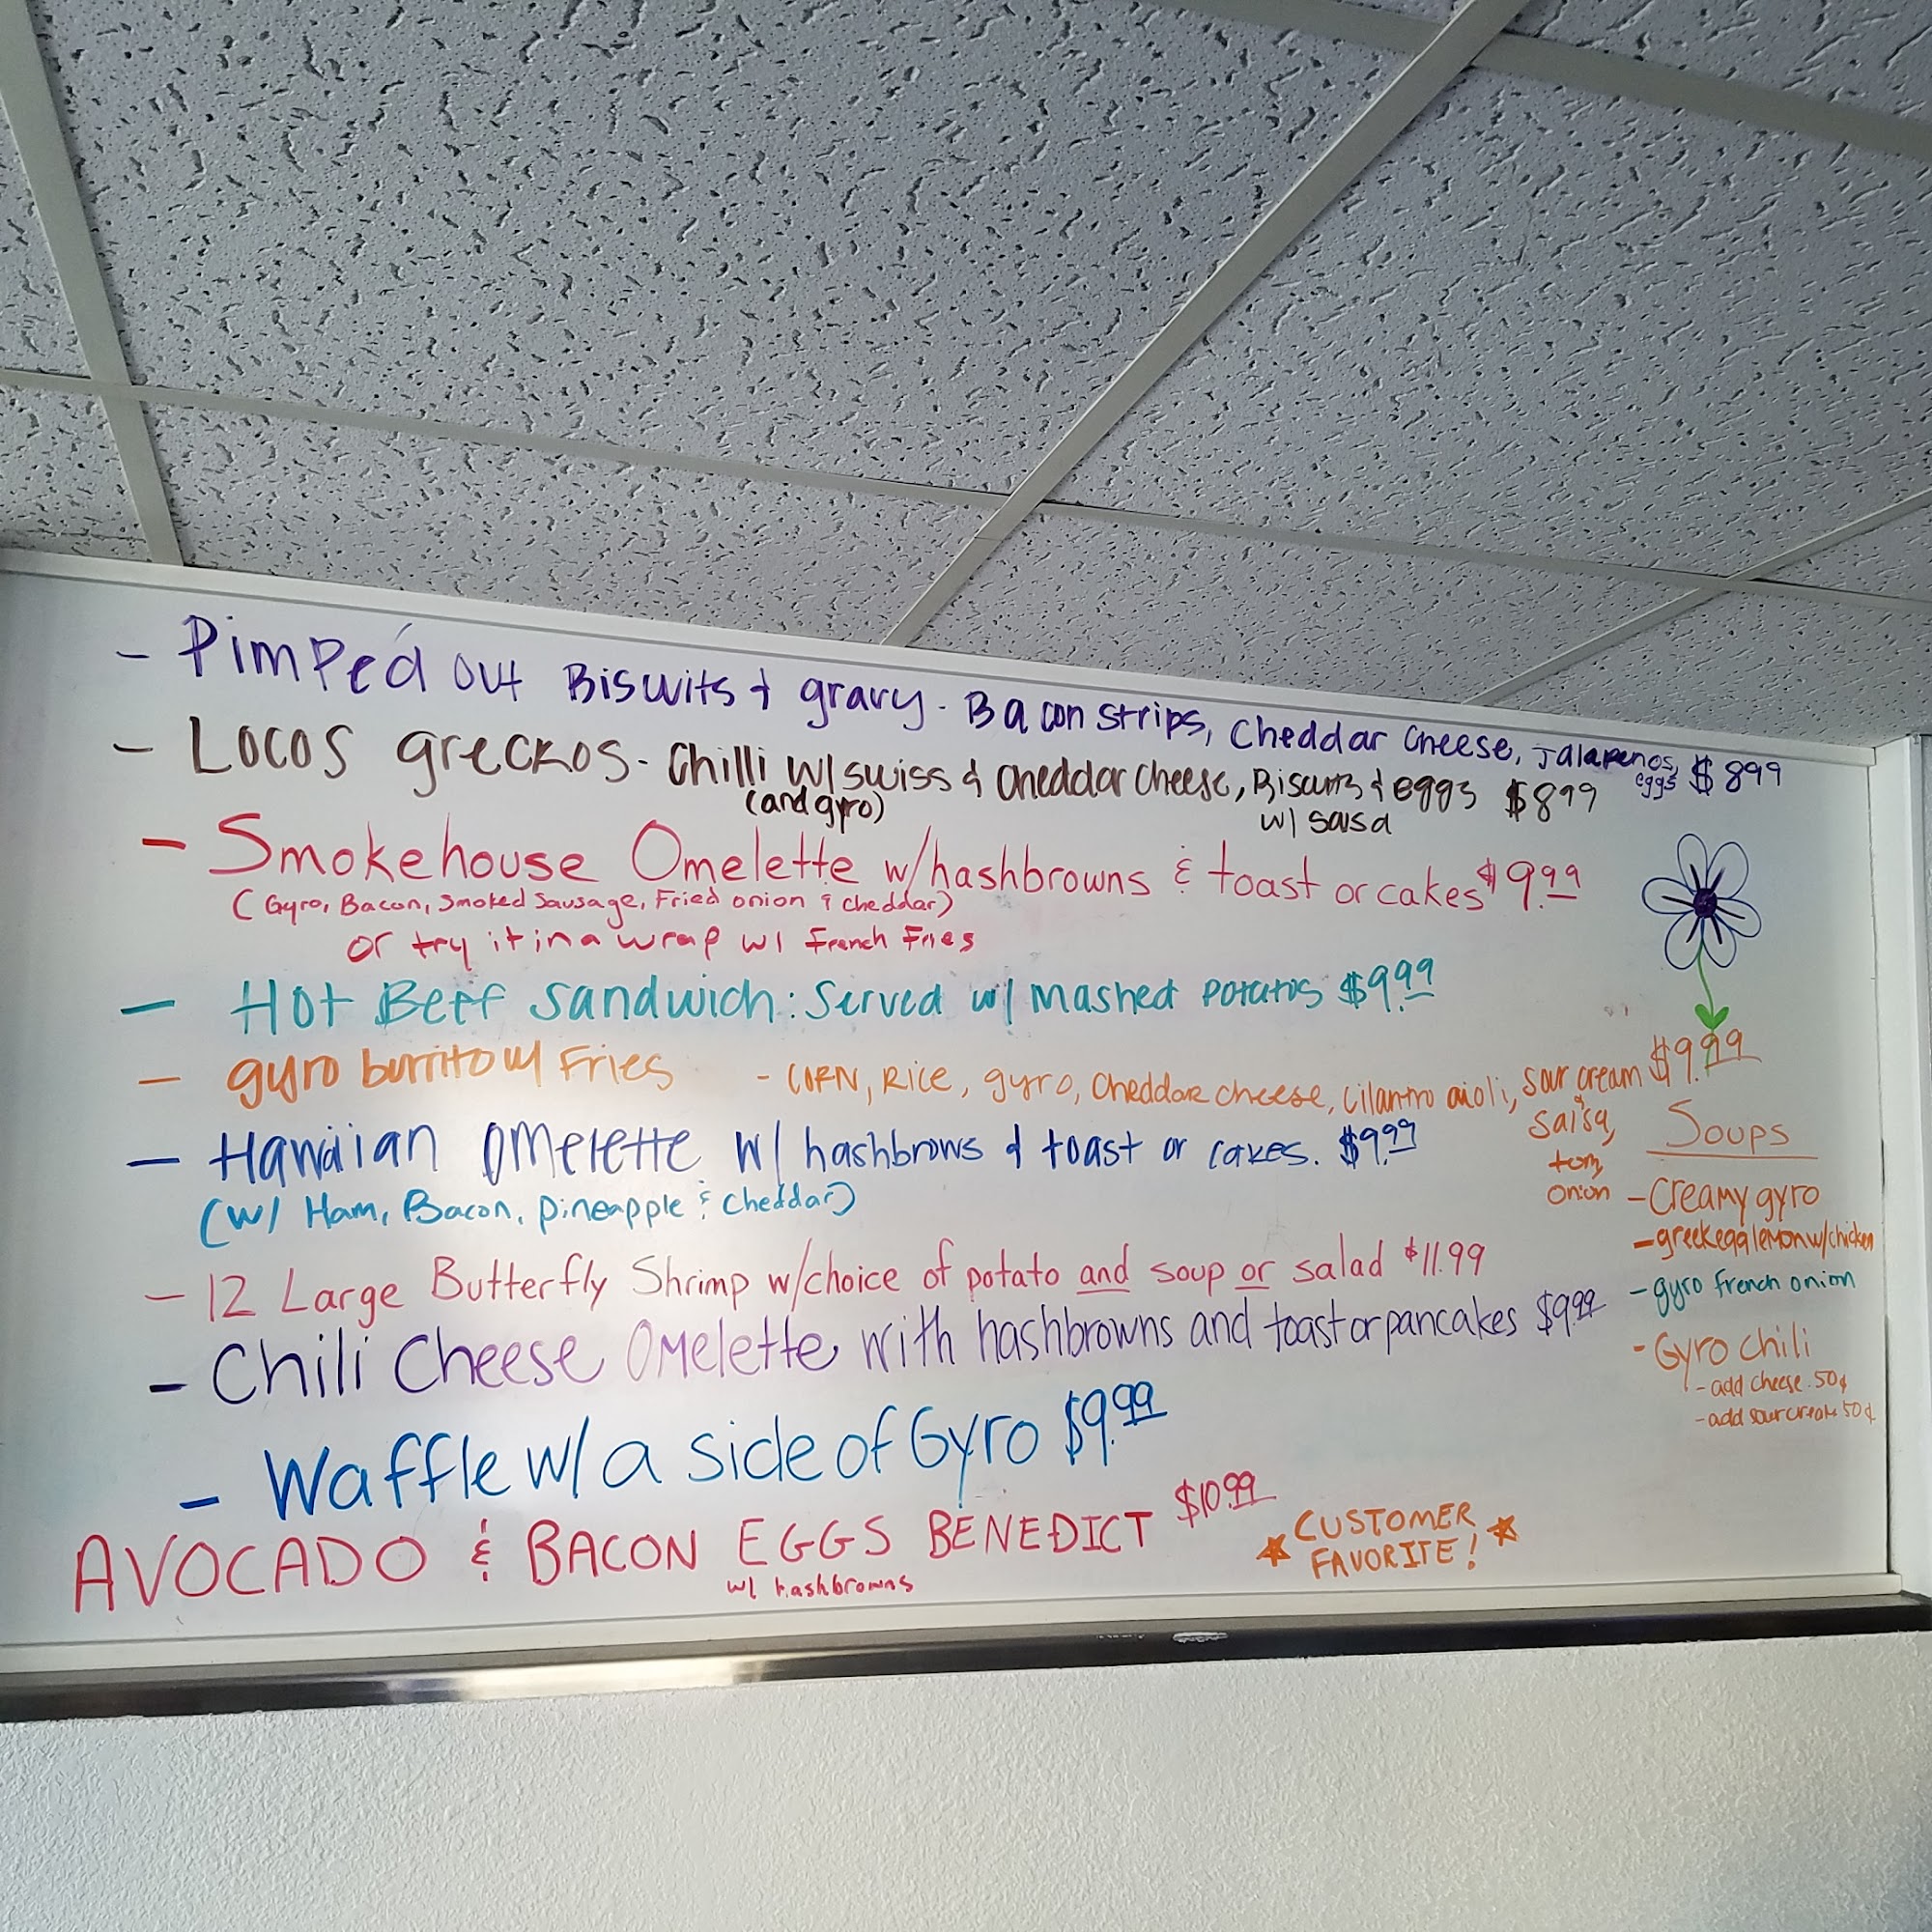 - Pimped out Biscuits & gravy - Bacon strips, Cheddar Cheese, Jalapenos, eggs $8 99
- Locos greckos - Chilli w/ swiss & cheddar cheese, Biscuits & eggs $8 99
(and gyro) w/ salsa
- Smokehouse Omelette w/hashbrowns & toast or cakes $9.99
(Gyro, Bacon, Smoked Sausage, Fried onion & cheddar)
or try it in a wrap w/ French Fries
- Hot Beef Sandwich: Served w/ mashed potatos $9.99
- gyro burrito w/ Fries - CORN, Rice, gyro, Cheddar cheese, cilantro aioli, sour cream $9.99
& salsa,
tom,
onion
- Hawaiian Omelette w/ hashbrows & toast or cakes. $9.99
(w/ Ham, Bacon, pineapple & cheddar)
- 12 Large Butterfly Shrimp w/choice of potato and soup or salad $11.99
- Chili Cheese Omelette with hashbrowns and toast or pancakes $9.99
- Waffle w/ a side of Gyro $9.99
AVOCADO & BACON EGGS BENEDICT $10.99
w/ hashbrowns
CUSTOMER
FAVORITE!
Soups
- Creamy gyro
- greek egg lemon w/chicken
- gyro french onion
- Gyro chili
- add cheese .50¢
- add sour cream 50¢